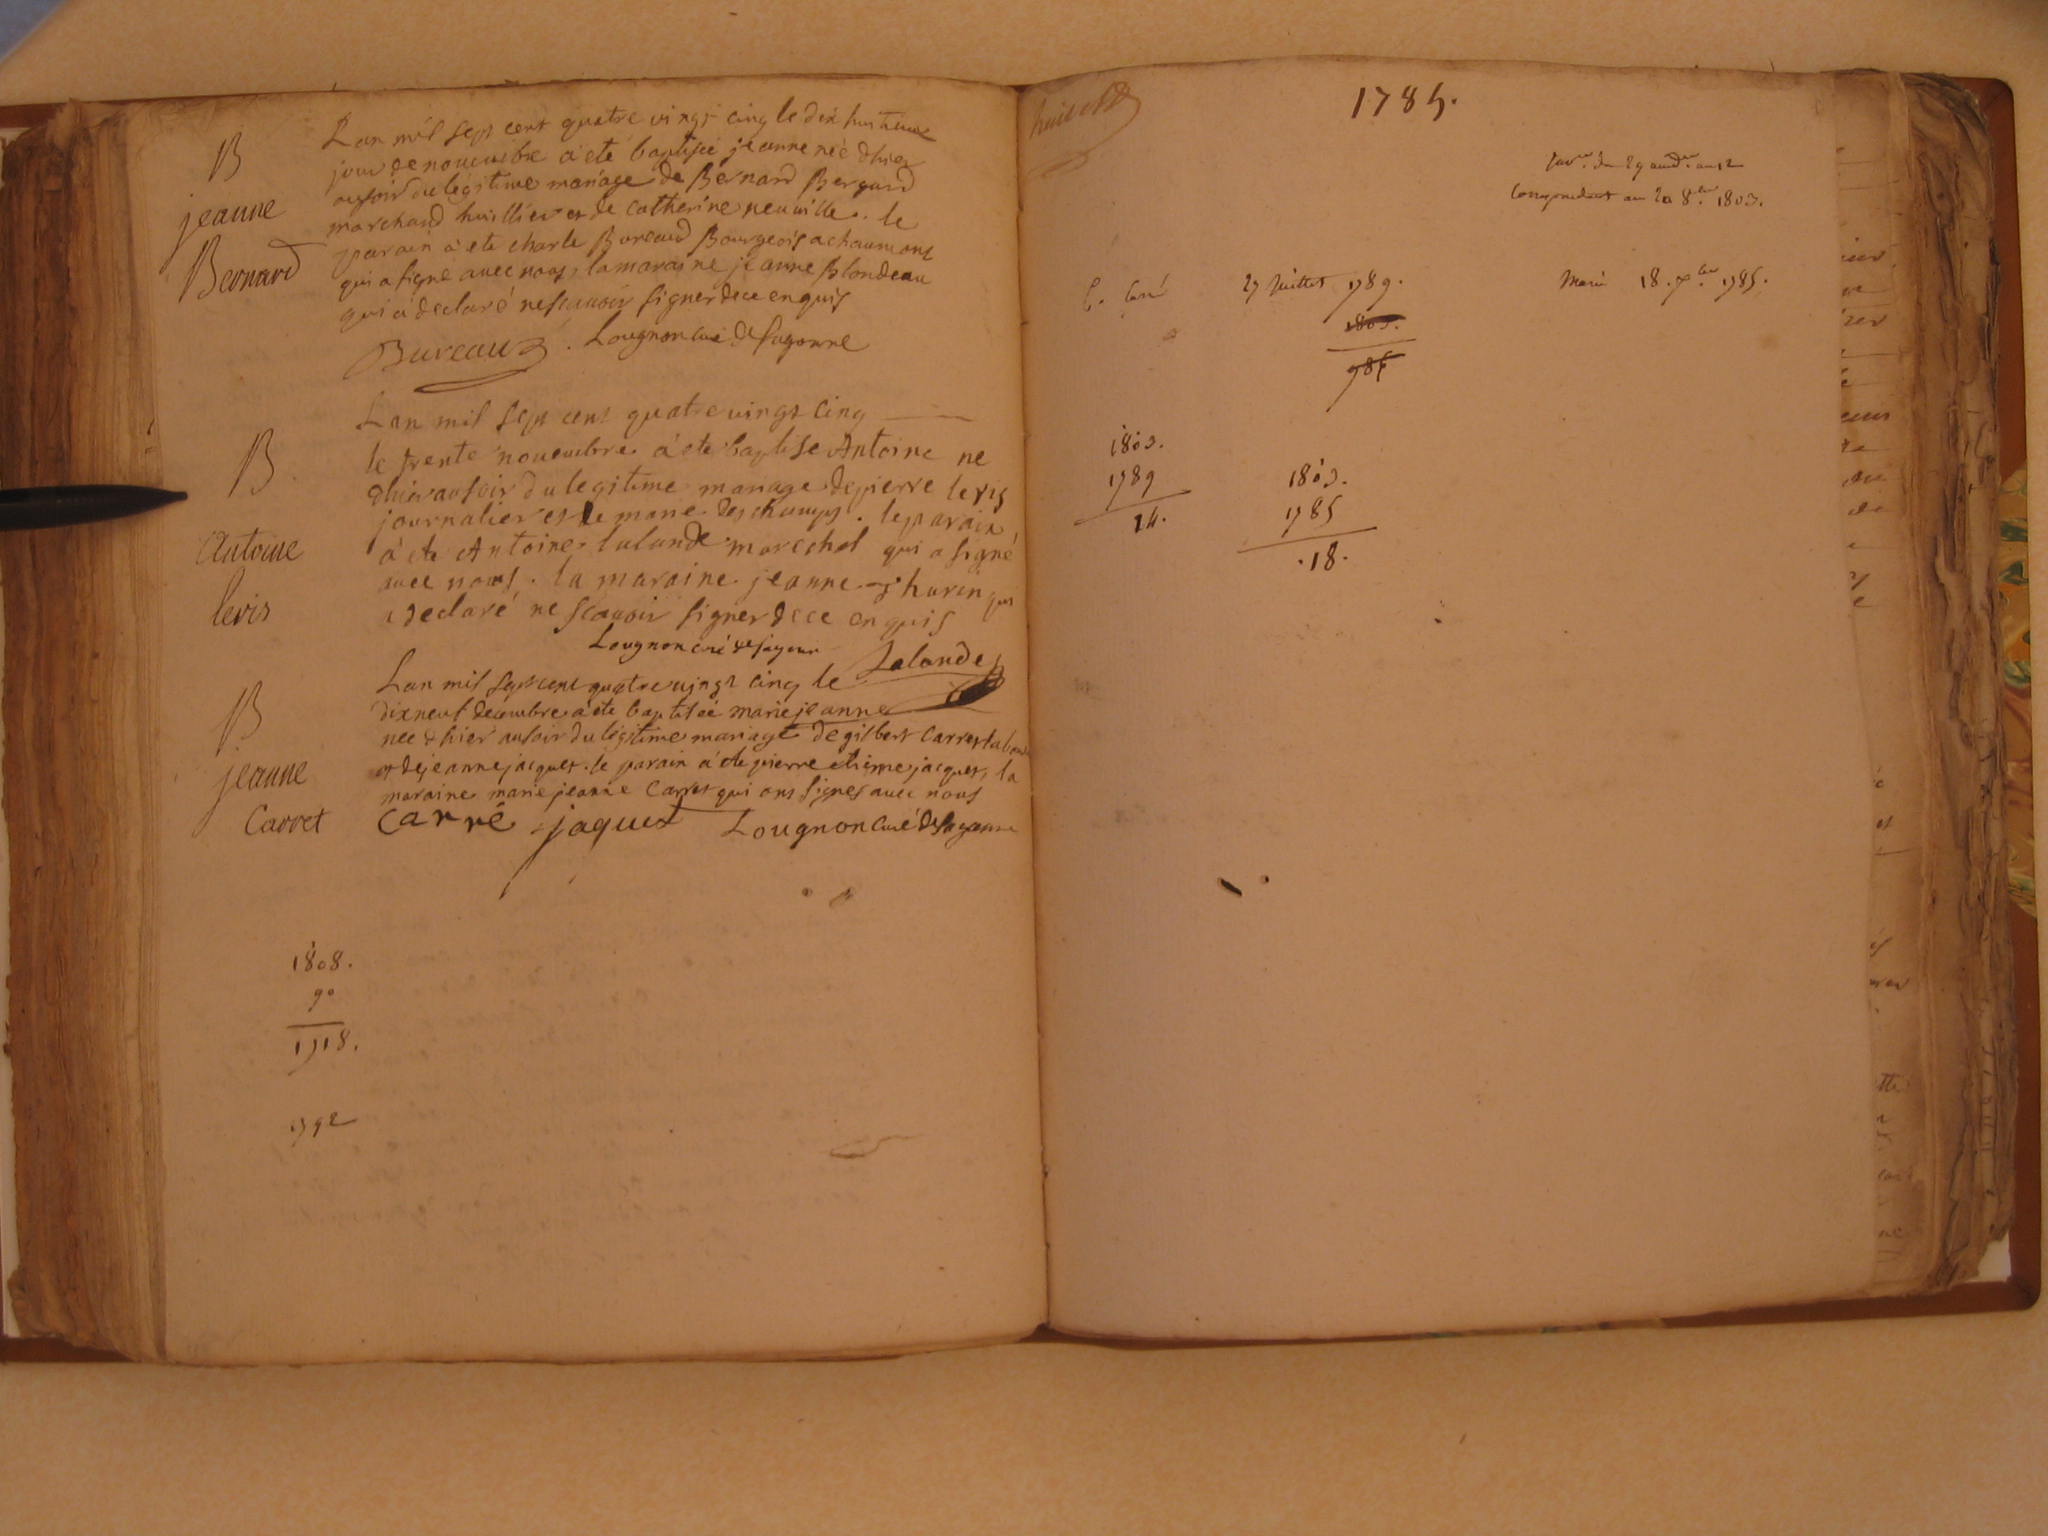 B
jeanne
Bernard
Lan mil sept cent quatre vingt cinq le dix huitieme
jour de novembre a été baptisée jeanne née dhier
au soir du legitime mariage de Bernard Bergard
marchand huillier et de Catherine neuville. le
parain à ete charle Bureaud Bourgeois a chaumont
qui a signe avec nous, la maraine jeanne Blondeau
qui à declaré ne scavoir signer de ce enquis
Bureaud. Lougnon curé de Sagonne
B
Antoine
levis
Lan mil sept cent quatre vingt cinq
le trente novembre à ete baptise Antoine ne
dhier au soir du legitime mariage de pierre levis
journalier et de marie deschamps. le parain
à ete Antoine lalande mareschal qui a signé
avec nous. la maraine jeanne thurin qui
a declaré ne scavoir signer de ce enquis
Lougnon curé de Sagonne Lalande
B
jeanne
Carret
Lan mil sept cent quatre vingt cinq le
dix neuf decembre a ete baptisée marie jeanne
née dhier au soir du légitime mariage de gilbert Carret
et de jeanne jacquet. le parain à ete pierre etienne jacquet, la
maraine marie jeanne Carret qui ont signes avec nous
carré jaquet Lougnon curé de Sagonne
1808.
90
1718.
1792
huit
1785.
du 29 an 12
Correspondant au 20 8.bre 1803.
C. Carré 27 Juillet 1789. Marié 18. 7.bre 1785.
1803.
986
1803.
1789
14.
1803.
1785
.18.